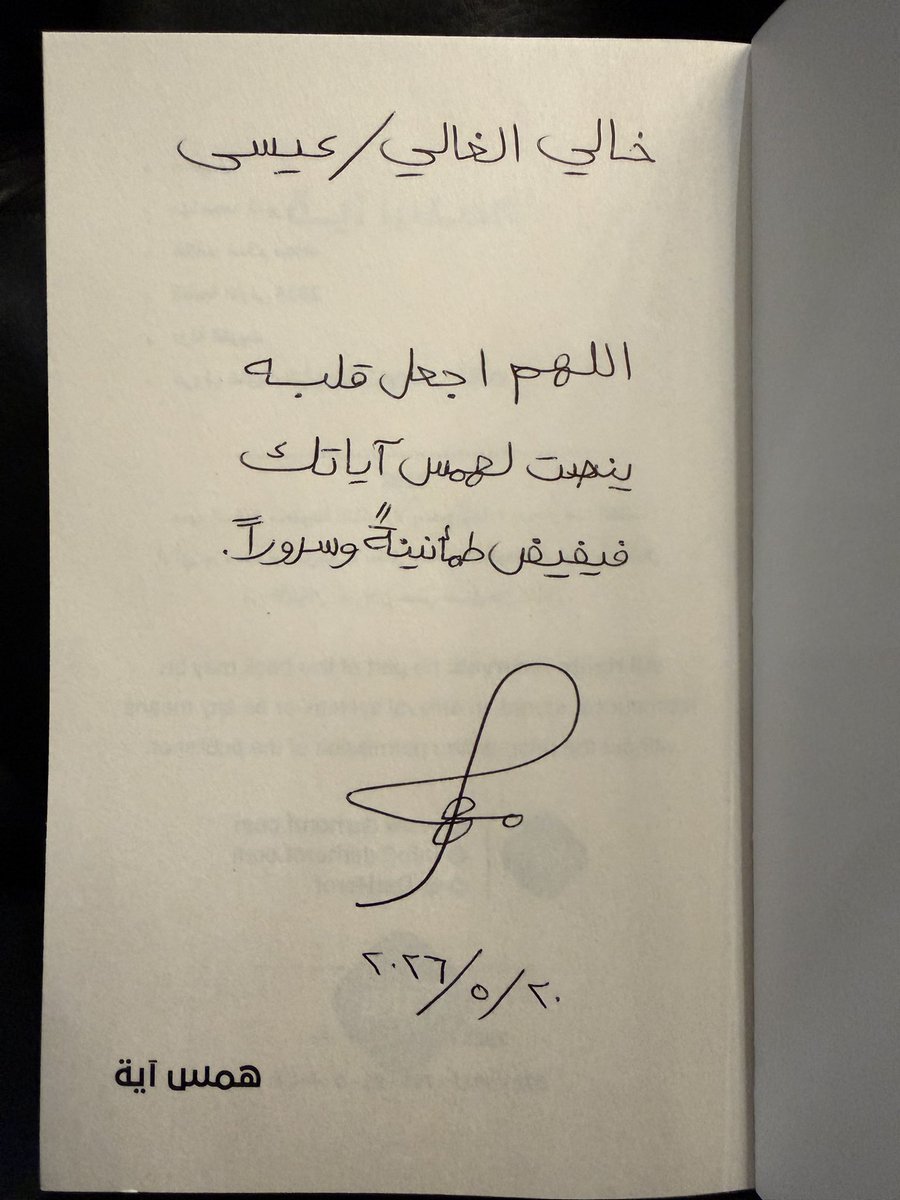 خالي الغالي/عيسى
اللهم اجعل قلبه
ينصت لهمس آياتك
فيفيض طمأنينةً وسروراً.
٢٠٢٦/٥/٢٠
همس آية